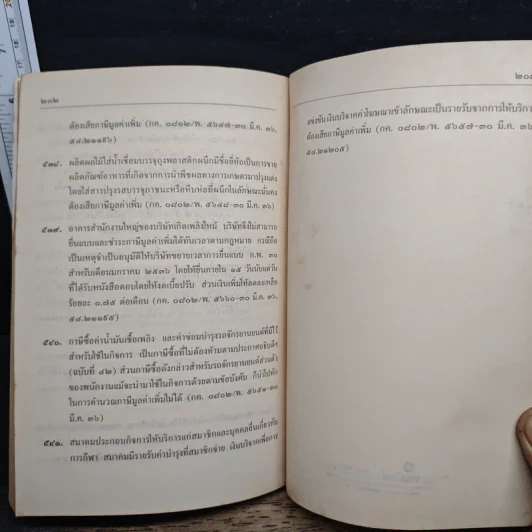 ๒๐๒
ต้องเสียภาษีมูลค่าเพิ่ม (กค. ๐๘๐๒/พ. ๕๖๔๗-๓๐ มี.ค. ๓๖,
๕๔.๒๑๑๙๖)
๕๓๘. ผลิตผลไม้ใส่น้ำเชื่อมบรรจุถุงพลาสติกผนึกมียี่ห้อเป็นการขาย
ผลิตภัณฑ์อาหารที่เกิดจากการนำพืชผลทางการเกษตรมาปรุงแต่ง
โดยใส่สารปรุงรสบรรจุภาชนะหรือหีบห่อที่ผนึกในลักษณะมั่นคง
ต้องเสียภาษีมูลค่าเพิ่ม (กค. ๐๘๐๒/พ. ๕๖๔๘-๓๐ มี.ค. ๓๖)
๕๓๙. อาคารสำนักงานใหญ่ของบริษัทเกิดเพลิงไหม้ บริษัทจึงไม่สามารถ
ยื่นแบบและชำระภาษีมูลค่าเพิ่มได้ทันเวลาตามกฎหมาย กรณีถือ
เป็นเหตุจำเป็นอนุมัติให้บริษัทขยายเวลาการยื่นแบบ ภ.พ. ๓๐
สำหรับเดือนมกราคม ๒๕๓๖ โดยให้ยื่นภายใน ๑๕ วันนับแต่วัน
ที่ได้รับหนังสือตอบโดยให้งดเบี้ยปรับ ส่วนเงินเพิ่มให้ลดลงเหลือ
ร้อยละ ๐.๗๕ ต่อเดือน (กค. ๐๘๐๒/พ. ๕๖๖๐-๓๐ มี.ค. ๓๖,
๕๔.๒๑๑๙๕)
๕๔๐. ภาษีซื้อค่าน้ำมันเชื้อเพลิง และค่าซ่อมบำรุงรถจักรยานยนต์ที่มีไว้
สำหรับใช้ในกิจการ เป็นภาษีซื้อที่ไม่ต้องห้ามตามประกาศอธิบดีฯ
(ฉบับที่ ๔๒) ส่วนภาษีซื้อดังกล่าวสำหรับรถจักรยานยนต์ส่วนตัว
ของพนักงานแม้จะนำมาใช้ในกิจการด้วยตามข้อบังคับ ก็นำไปหัก
ในการคำนวณภาษีมูลค่าเพิ่มไม่ได้ (กค. ๐๘๐๒/พ. ๕๖๕๑-๓๐
มี.ค. ๓๖)
๕๔๑. สมาคมประกอบกิจการให้บริการแก่สมาชิกและบุคคลอื่นเกี่ยวกับ
การกีฬา สมาคมมีรายรับค่าบำรุงที่สมาชิกจ่าย เงินบริจาคเพื่อการ
แข่งขัน เงินบริจาคค่าโฆษณาเข้าลักษณะเป็นรายรับจากการให้บริการ
ต้องเสียภาษีมูลค่าเพิ่ม (กค. ๐๘๐๒/พ. ๕๖๕๗-๓๐ มี.ค. ๓๖,
๕๔.๒๑๒๐๕)